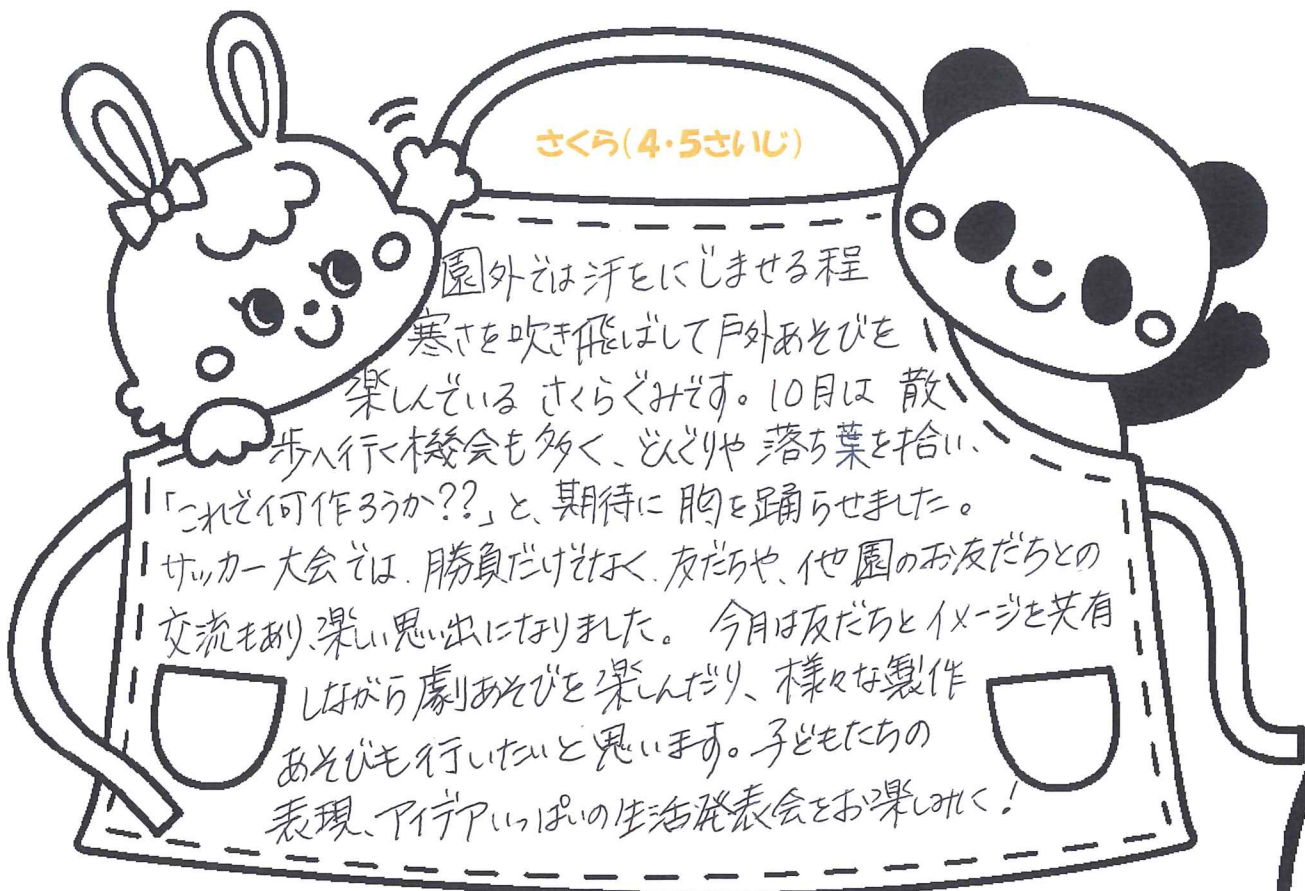 さくら(4・5さいじ)
園外では汗をにじませる程
寒さを吹き飛ばして戸外あそびを
楽しんでいる さくらぐみです。10月は 散
歩へ行く機会も多く、どんぐりや 落ち葉を拾い、
「これで何作ろうか??」と、期待に 胸を踊らせました。
サッカー大会では、勝負だけでなく、友だちや、他園のお友だちとの
交流もあり、楽しい思い出になりました。 今月は友だちとイメージを共有
しながら劇あそびを楽しんだり、様々な製作
あそびも行いたいと思います。子どもたちの
表現、アイデアいっぱいの生活発表会をお楽しみに!